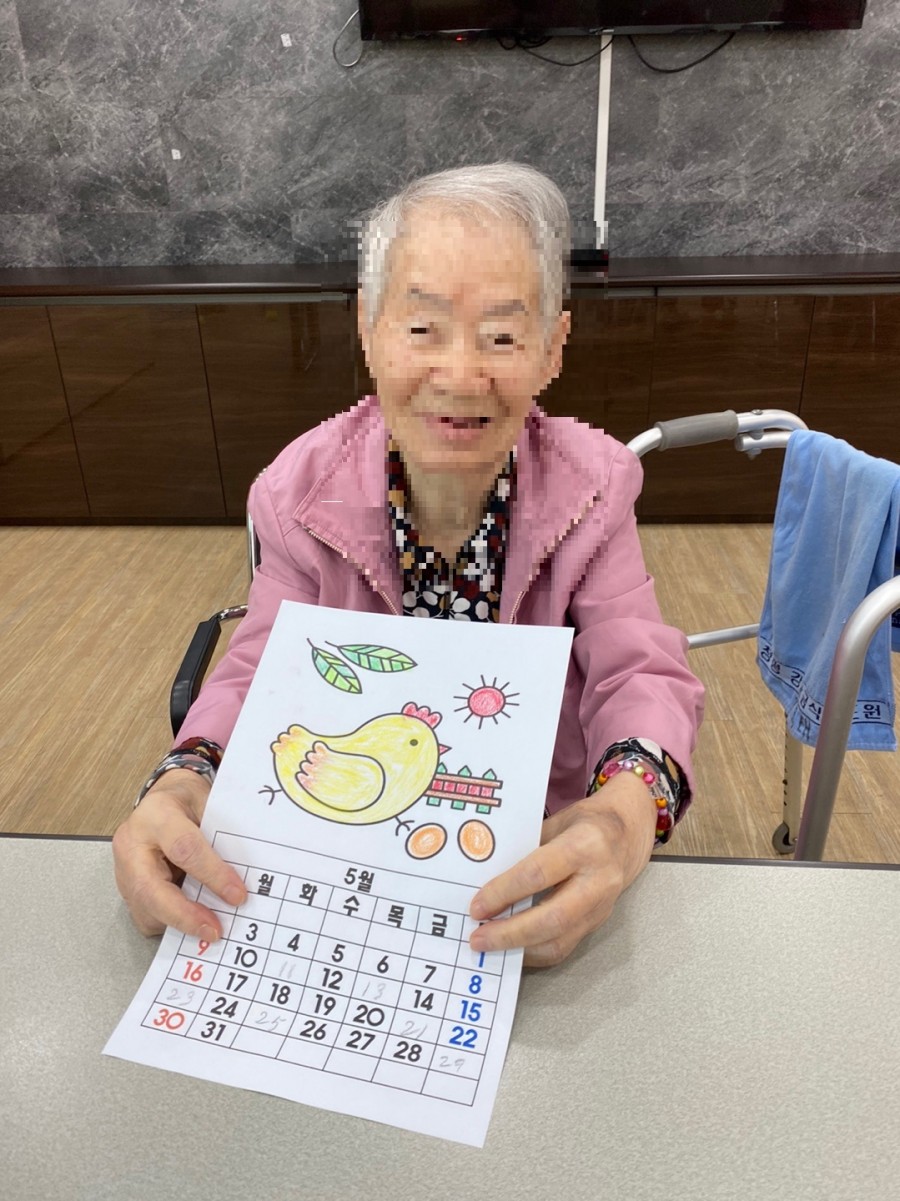 5월
월 화 수 목 금
1
3 4 5 6 7 8
9 10 11 12 13 14 15
16 17 18 19 20 21 22
23 24 25 26 27 28 29
30 31